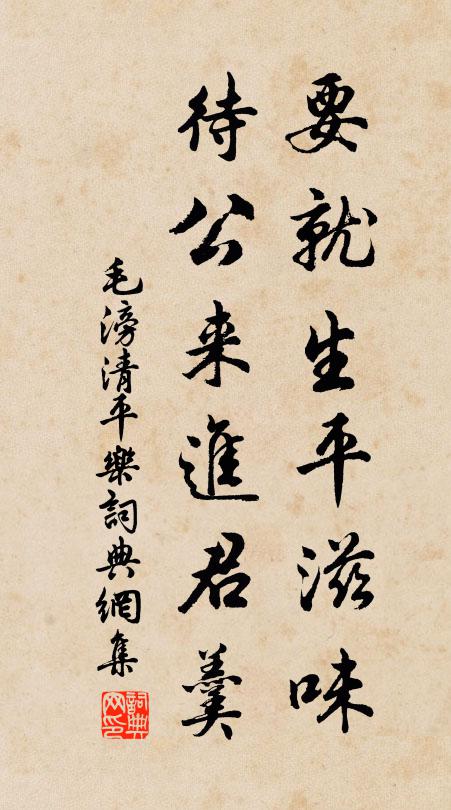 要就生平滋味
待公来進君羹
毛滂清平樂詞典網集
詞典网印